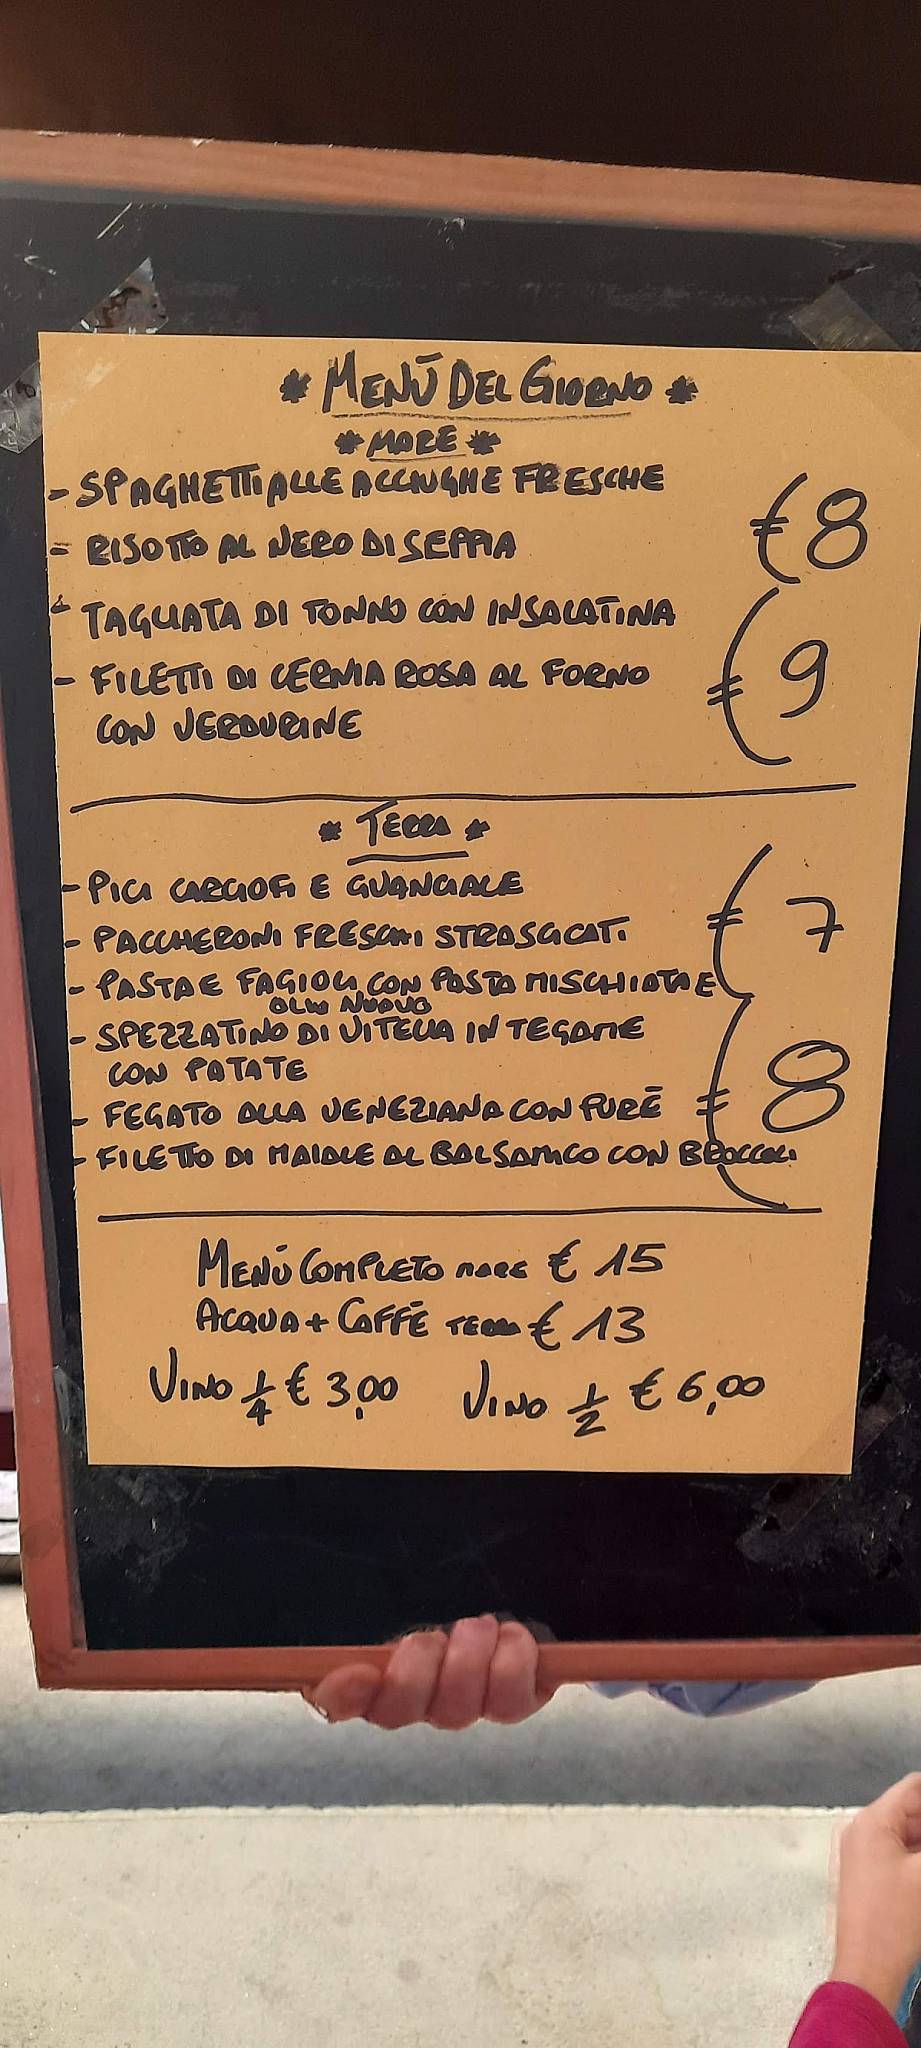 * MENÙ DEL GIORNO *
* MARE *
- SPAGHETTI ALLE ACCIUGHE FRESCHE
- RISOTTO AL NERO DI SEPPIA
€ 8
- TAGLIATA DI TONNO CON INSALATINA
- FILETTI DI CERNIA ROSA AL FORNO
CON VERDURINE
€ 9
* TERRA *
- PICI CARCIOFI E GUANCIALE
- PACCHERONI FRESCHI STRASCICATI
- PASTA E FAGIOLI CON PASTA MISCHIATA E
OLIO NUOVO
€ 7
- SPEZZATINO DI VITELLA IN TEGAME
CON PATATE
- FEGATO ALLA VENEZIANA CON PURÈ
- FILETTO DI MAIALE AL BALSAMICO CON BROCCOLI
€ 8
MENÙ COMPLETO MARE € 15
ACQUA + CAFFÈ TERRA € 13
VINO 1/4 € 3,00 VINO 1/2 € 6,00